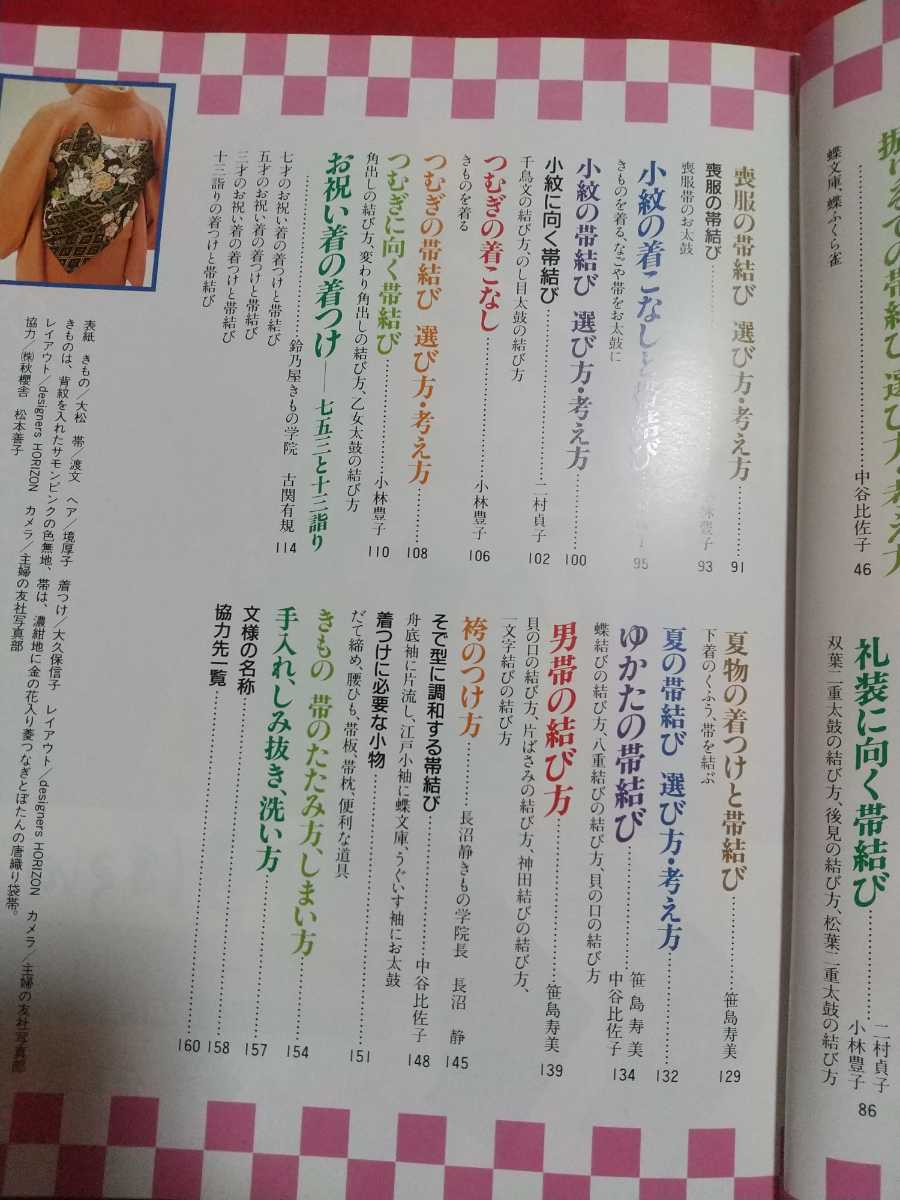 振りそでの帯結び 選び方・考え方
中谷比佐子 46
蝶文庫、蝶ふくら雀
礼装に向く帯結び
二村貞子
小林豊子 86
双葉二重太鼓の結び方、後見の結び方、松葉二重太鼓の結び方
喪服の帯結び 選び方・考え方 91
喪服の帯結び
林豊子 93
喪服帯のお太鼓
小紋の着こなしと帯結び
95
きものを着る、なごや帯をお太鼓に
小紋の帯結び 選び方・考え方 100
小紋に向く帯結び 二村貞子 102
千鳥文の結び方、のし目太鼓の結び方
つむぎの着こなし 小林豊子 106
きものを着る
つむぎの帯結び 選び方・考え方 108
つむぎに向く帯結び 小林豊子 110
角出しの結び方、変わり角出しの結び方、乙女太鼓の結び方
お祝い着の着つけ——七五三と十三詣り
鈴乃屋きもの学院 古関有規 114
七才のお祝い着の着つけと帯結び
五才のお祝い着の着つけと帯結び
三才のお祝い着の着つけと帯結び
十三詣りの着つけと帯結び
夏物の着つけと帯結び 笹島寿美 129
下着のくふう、帯を結ぶ
夏の帯結び 選び方・考え方 132
ゆかたの帯結び
笹島寿美
中谷比佐子 134
蝶結びの結び方、八重結びの結び方、貝の口の結び方
男帯の結び方 笹島寿美 139
貝の口の結び方、片ばさみの結び方、神田結びの結び方、
一文字結びの結び方
袴のつけ方 長沼静きもの学院長 長沼 静 145
そで型に調和する帯結び 中谷比佐子 148
舟底袖に片流し、江戸小袖に蝶文庫、うぐいす袖にお太鼓
着つけに必要な小物 151
だて締め、腰ひも、帯板、帯枕、便利な道具
きもの 帯のたたみ方、しまい方 154
手入れ、しみ抜き、洗い方 157
文様の名称 158
協力先一覧 160
表紙 きもの/大松 帯/渡文 ヘア/境厚子 着つけ/大久保信子 レイアウト/designers HORIZON カメラ/主婦の友社写真部
きものは、背紋を入れたサモンピンクの色無地、帯は、濃紺地に金の花入り菱つなぎとぼたんの唐織り袋帯。
レイアウト/designers HORIZON カメラ/主婦の友社写真部
協力/㈱秋櫻舎 松本善子